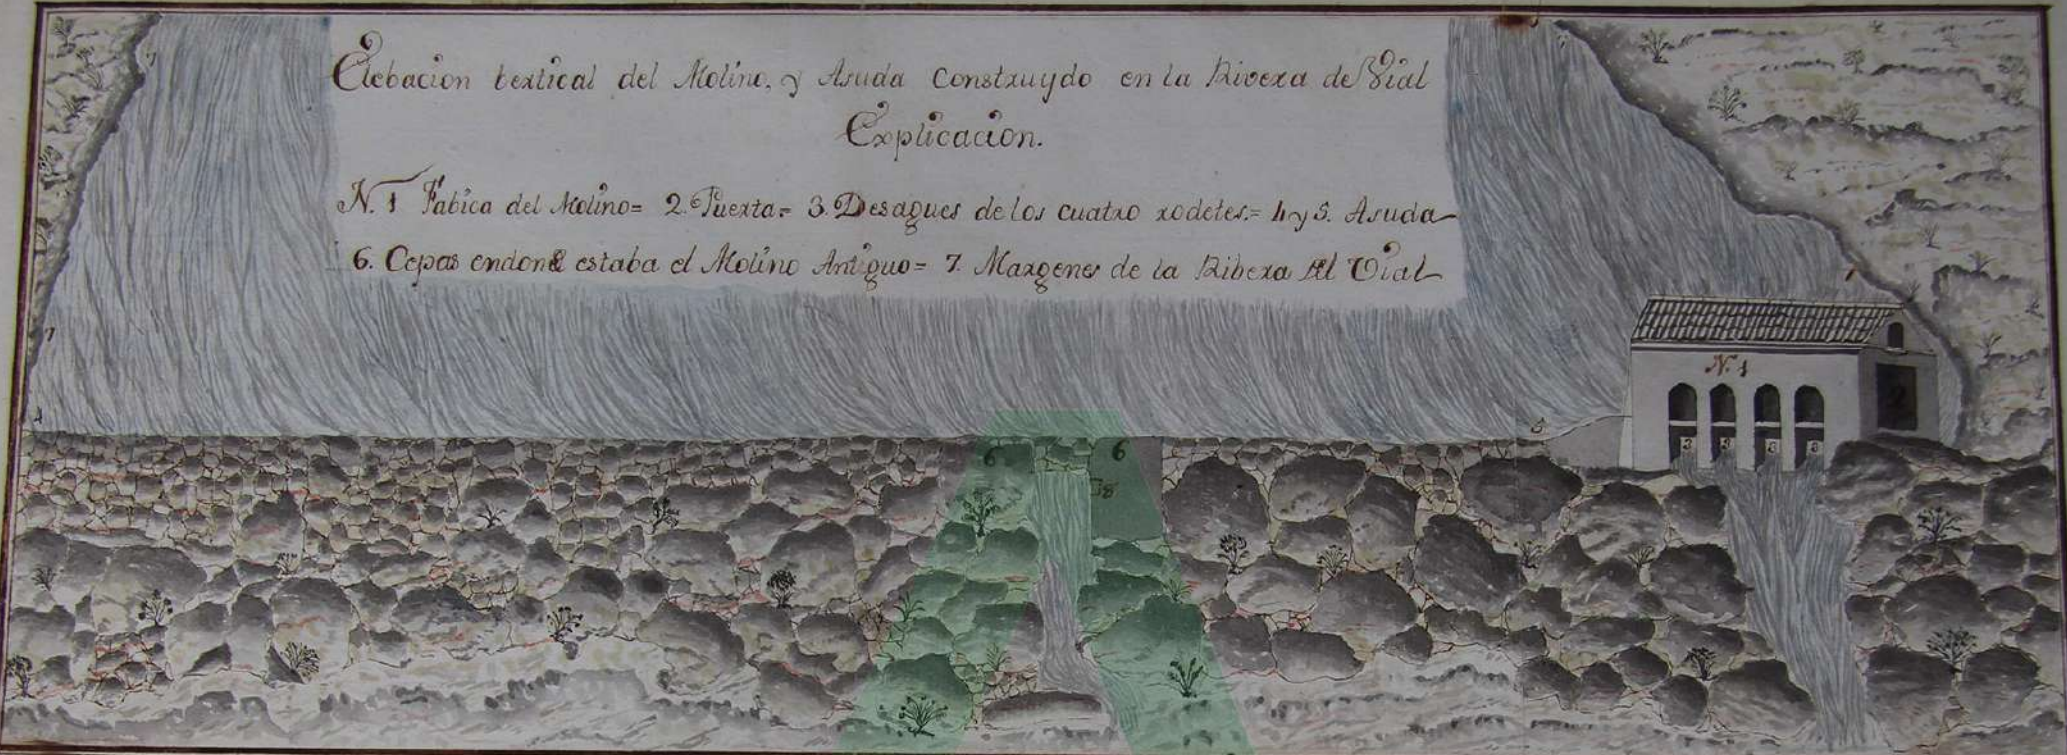 Elebacion bertical del Molino, y Asuda Construydo en la Rivera de Vial
Explicacion.
N. 1 Fabica del Molino= 2. Puerta= 3. Desagues de los cuatro rodetes.= 4 y 5. Asuda
6. Cepas endonde estaba el Molino Antiguo= 7. Margenes de la Ribera del Vial
7
7
7
7
N. 1
2
4
5
3 3 3 3
6 6
8